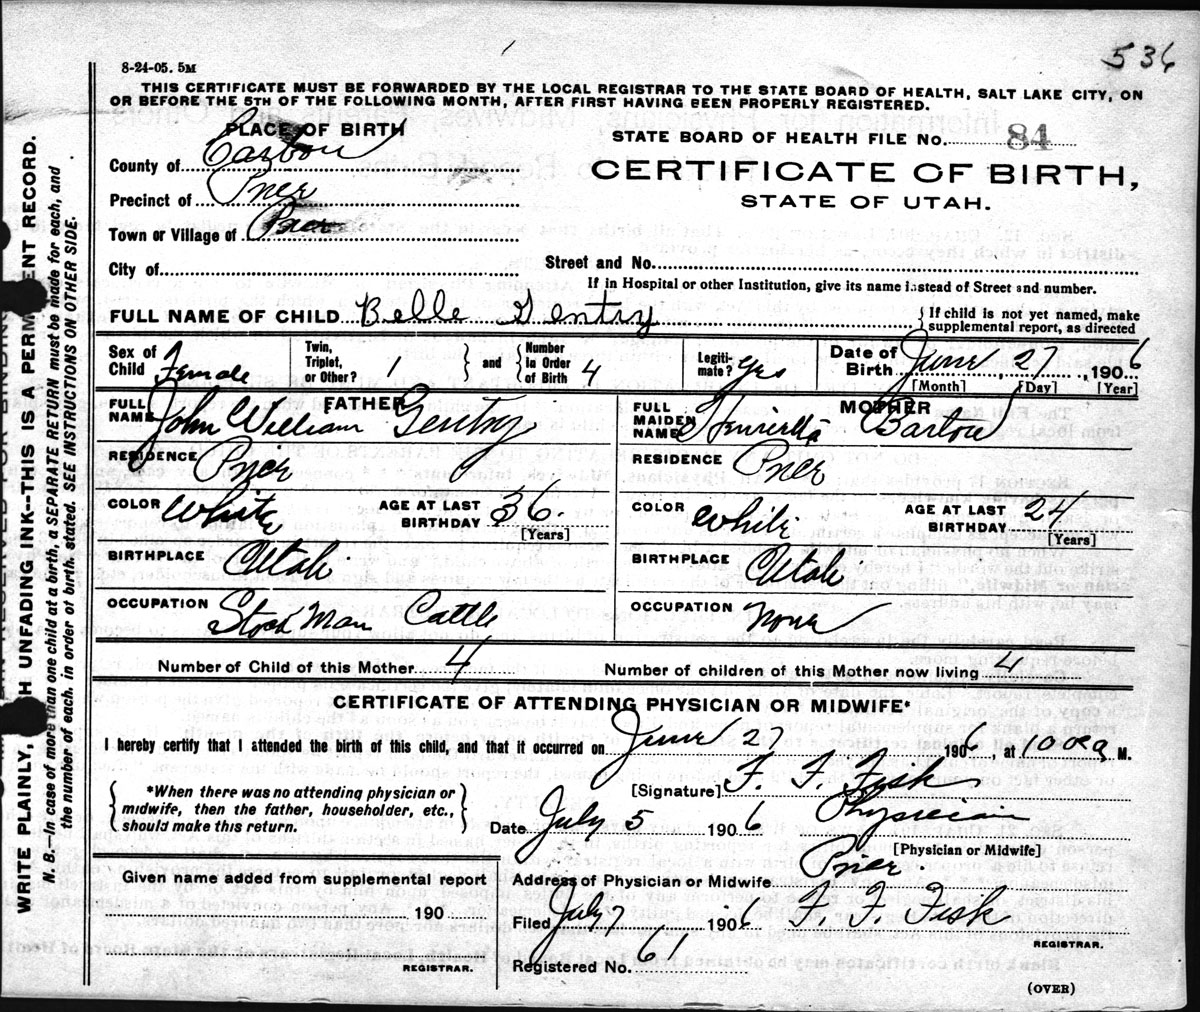 536
8-24-05. 5M
THIS CERTIFICATE MUST BE FORWARDED BY THE LOCAL REGISTRAR TO THE STATE BOARD OF HEALTH, SALT LAKE CITY, ON
OR BEFORE THE 5TH OF THE FOLLOWING MONTH, AFTER FIRST HAVING BEEN PROPERLY REGISTERED.
PLACE OF BIRTH
STATE BOARD OF HEALTH FILE No. 84
County of Carbon
CERTIFICATE OF BIRTH,
Precinct of Price
STATE OF UTAH.
Town or Village of Price
City of
Street and No.
If in Hospital or other Institution, give its name instead of Street and number.
FULL NAME OF CHILD Belle Gentry
{ If child is not yet named, make
supplemental report, as directed
Sex of Child Female
Twin, Triplet, or Other? 1
} and {
Number in Order of Birth 4
Legiti-mate? Yes
Date of Birth June, 27, 1906
[Month] [Day] [Year]
FATHER
FULL NAME John William Gentry
MOTHER
FULL MAIDEN NAME Henrietta Barlow
RESIDENCE Price
RESIDENCE Price
COLOR White
AGE AT LAST BIRTHDAY 36.
[Years]
COLOR White
AGE AT LAST BIRTHDAY 24
[Years]
BIRTHPLACE Utah
BIRTHPLACE Utah
OCCUPATION Stock Man Cattle
OCCUPATION None
Number of Child of this Mother 4
Number of children of this Mother now living 4
CERTIFICATE OF ATTENDING PHYSICIAN OR MIDWIFE*
I hereby certify that I attended the birth of this child, and that it occurred on June 27 1906 at 10 00 a M.
{ *When there was no attending physician or
midwife, then the father, householder, etc.,
should make this return. }
[Signature] F. F. Fisk
Date July 5 1906 Physician
[Physician or Midwife]
Given name added from supplemental report
190
REGISTRAR.
Address of Physician or Midwife Price.
Filed July 7 1906 F. F. Fisk
REGISTRAR.
Registered No. 61
(OVER)
WRITE PLAINLY, WITH UNFADING INK--THIS IS A PERMANENT RECORD.
N. B.—In case of more than one child at a birth, a SEPARATE RETURN must be made for each, and
the number of each, in order of birth, stated. SEE INSTRUCTIONS ON OTHER SIDE.